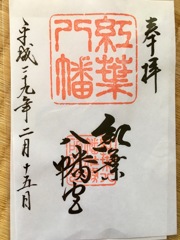 奉拝
紅葉
八幡
紅葉
八幡宮
平成二九年二月十五日